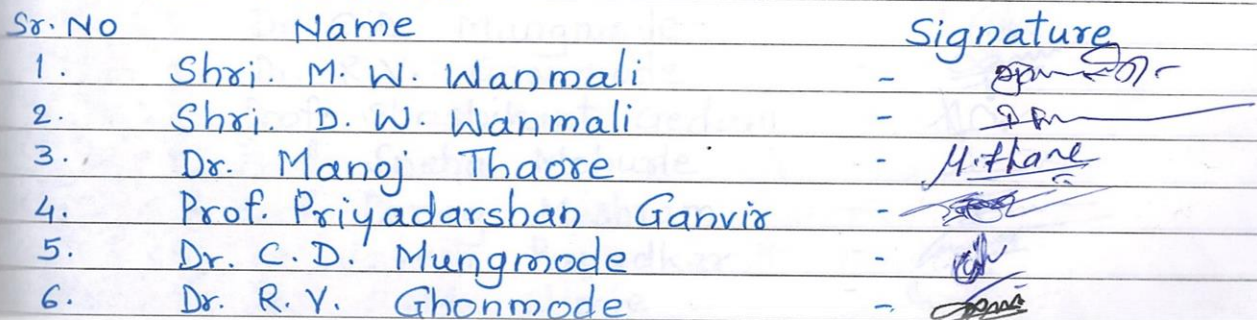 Sr. No Name Signature
1. Shri. M. W. Wanmali -
2. Shri. D. W. Wanmali -
3. Dr. Manoj Thaore - M.Thane
4. Prof. Priyadarshan Ganvir -
5. Dr. C. D. Mungmode -
6. Dr. R. V. Ghonmode -